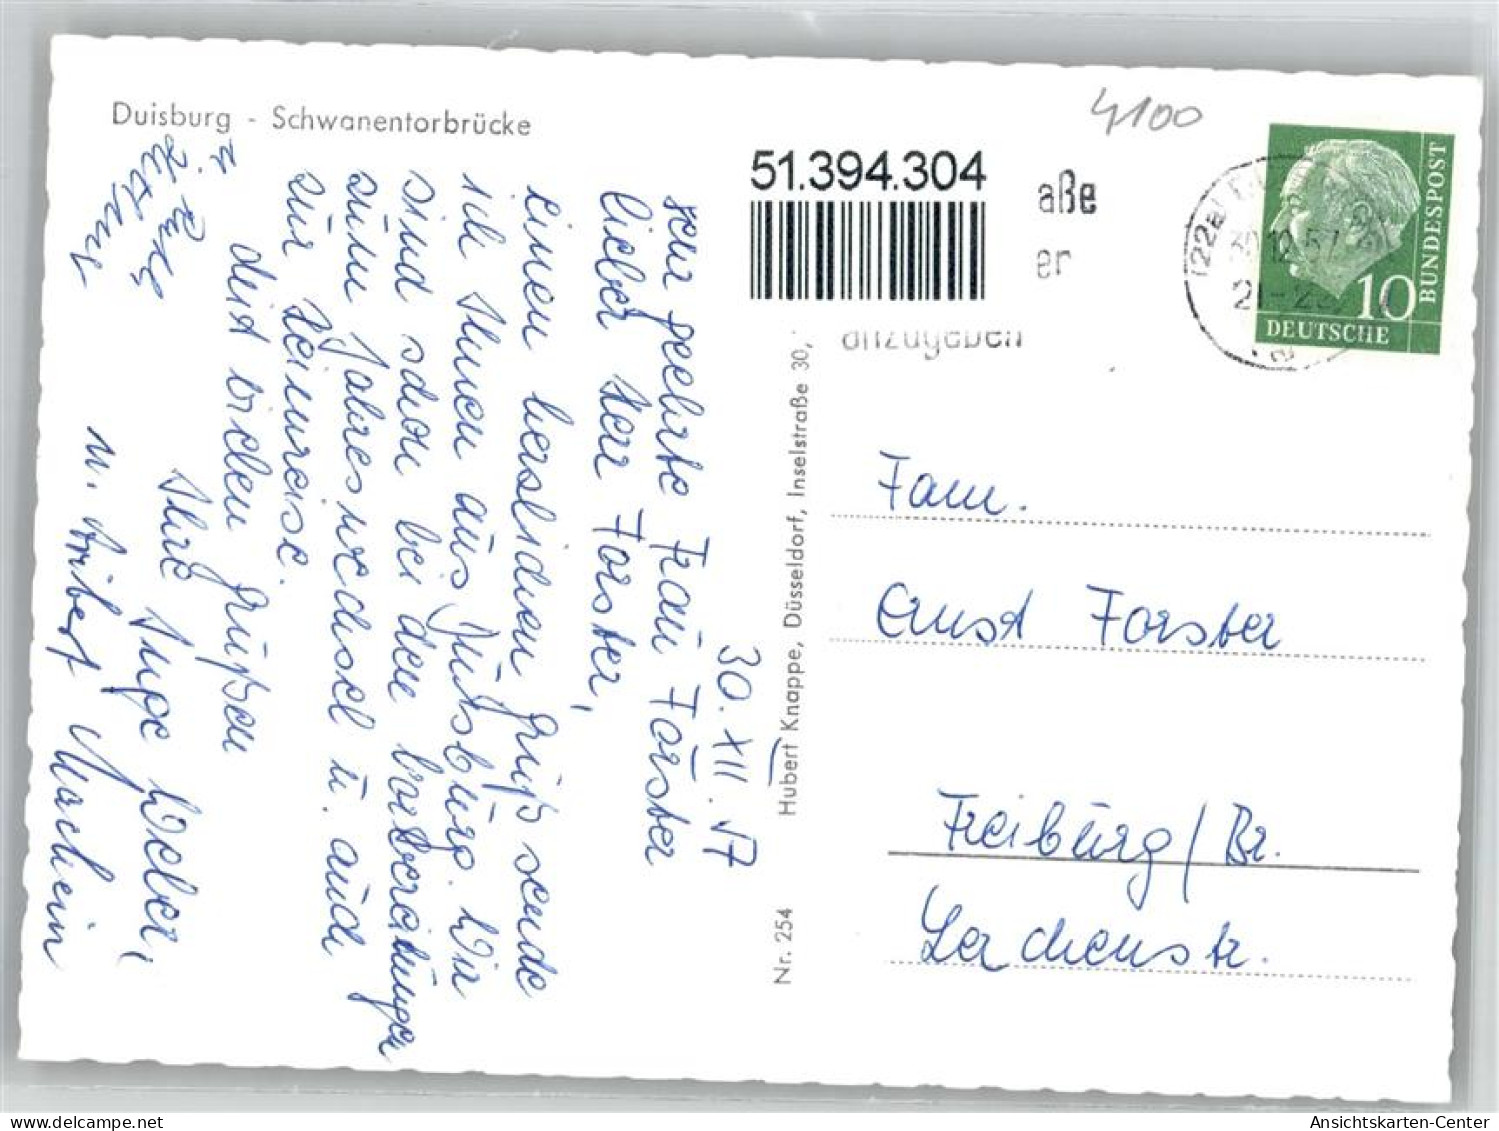 Duisburg - Schwanentorbrücke
4100
51.394.304
aße
er
anzugeben
(22a)
30.12.57
21-22
a
10
DEUTSCHE
BUNDESPOST
30. XII. 57
Sehr geehrte Frau Forster
lieber Herr Forster,
einen herzlichen Gruß sende
ich Ihnen aus Duisburg. Wir
sind schon bei den Vorbereitungen
zum Jahreswechsel u. auch
zur Heimreise.
Mit vielen Grüßen
Ihre Inge Weber,
u. Aribert Machein
Nr. 254
Hubert Knappe, Düsseldorf, Inselstraße 30,
Fam.
Ernst Forster
Freiburg/Br.
Lerchenstr.
Ansichtskarten-Center
delcampe.net